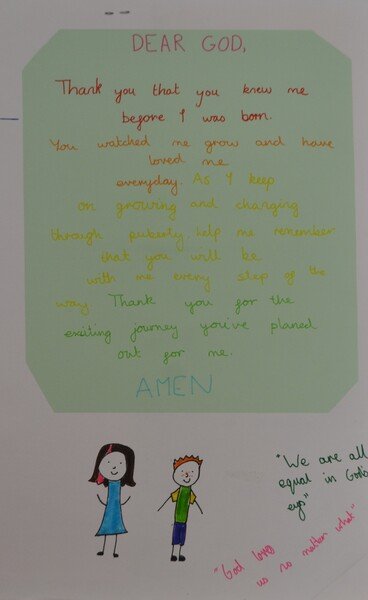 DEAR GOD,
Thank you that you knew me
before I was born.
You watched me grow and have
loved me
everyday. As I keep
on growing and changing
through puberty, help me remember
that you will be
with me every step of the
way. Thank you for the
exiting journey you've planed
out for me.
AMEN
"We are all
equal in God's
eyes"
"God loves
us no matter what"